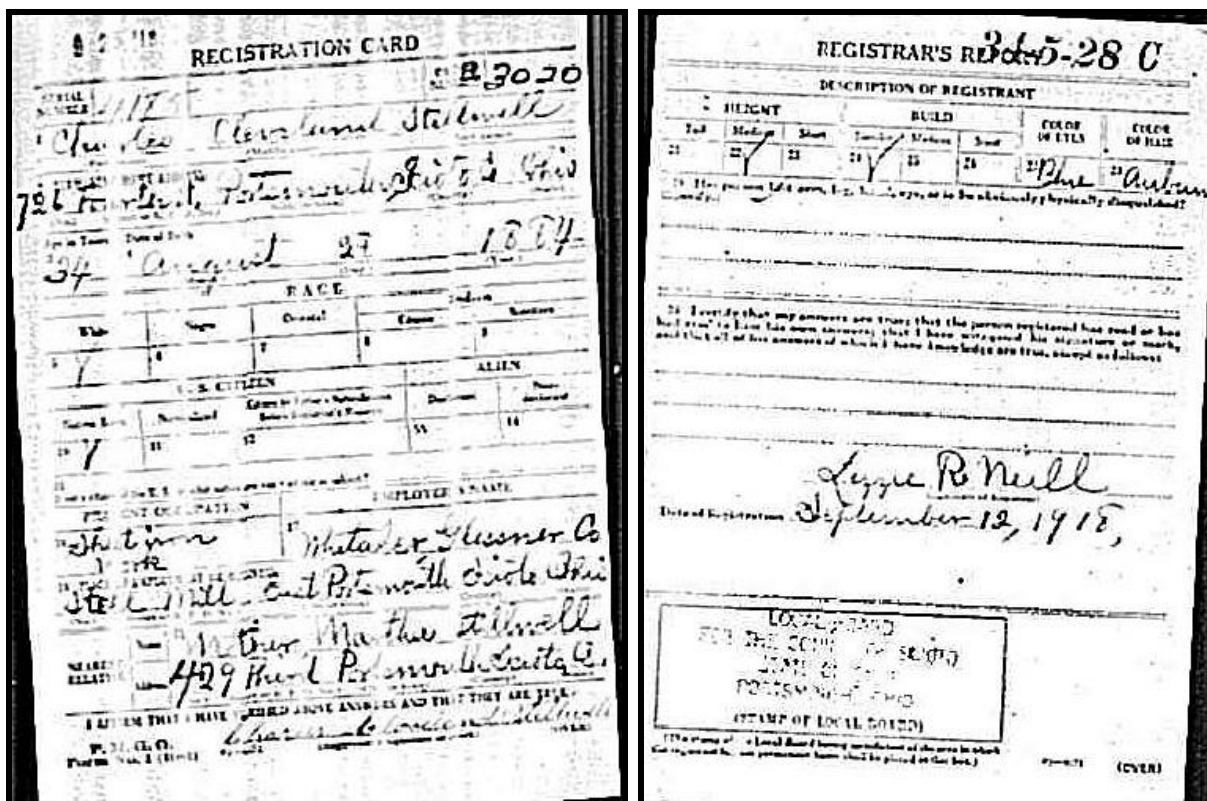 REGISTRATION CARD
SERIAL NUMBER
3020
Charles Cleveland Stillwell
726 Portsmouth Scioto Ohio
Age in Years Date of Birth
34 August 27 1884
RACE
White Negro Oriental
5 6 7 8 9
U. S. CITIZEN ALIEN
Native Born Naturalized
10 Y 11 12 13 14
15
PRESENT OCCUPATION EMPLOYER'S NAME
Whitaker Glessner Co
Steel Mill East Portsmouth Scioto Ohio
NEAREST RELATIVE
Name
Mother Martha Stillwell
429 Portsmouth Scioto O.
I AFFIRM THAT I HAVE VERIFIED ABOVE ANSWERS AND THAT THEY ARE TRUE
Charles Cleveland Stillwell
P. M. G. O.
Form No. 1 (Red) (OVER)
REGISTRAR'S REPORT
34-5-28 C
DESCRIPTION OF REGISTRANT
HEIGHT BUILD COLOR OF EYES COLOR OF HAIR
Tall Medium Short Slender Medium Stout
21 22 23 24 25 26 27 Blue 28 Auburn
29 Has person lost arm, leg, hand, eye, or is he obviously physically disqualified?
30 I certify that my answers are true; that the person registered has read or has
had read to him his own answers; that I have witnessed his signature or mark,
and that all of his answers of which I have knowledge are true, except as follows:
Lizzie R. Neill
Date of Registration September 12, 1918,
LOCAL BOARD
FOR THE COUNTY OF SCIOTO
STATE OF OHIO
PORTSMOUTH, OHIO
(STAMP OF LOCAL BOARD)
(The stamp of the Local Board having jurisdiction of the area in which
the registrant has his permanent home shall be placed in this box.)
(OVER)